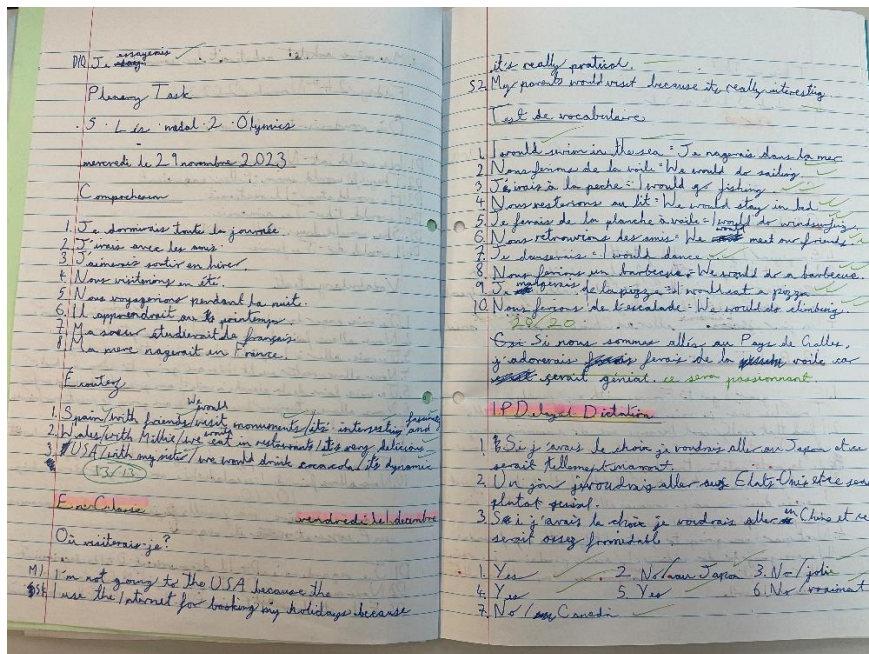 D10 Je essayerais
Plenary Task
5. L is modal 2. Olymics
mercredi le 29 novembre 2023
Comprehesion
1. Je dormirais toute la journée.
2. J'irais avec les amis.
3. J'aimerais sortir en hiver.
4. Nous visiterions en été.
5. Nous voyagerions pendant la nuit.
6. Il apprendrait au printemps.
7. Ma soeur étudierait de français.
8. Ma mere nagerait en France.
Ecoutez
1. Spain/with friends/We would visit monuments/it's interesting and
2. Wales/with Millie/we would eat in restaurants/it's very delicious
3. USA/with my sister/we would drink cocacola/it's dynamic
13/13
En Classe
vendredi le 1 decembre
Où visiterais-je?
M1. I'm not going to the USA because the
I use the Internet for booking my holidays because
it's really pratical.
S2. My parents would visit because its really interesting
Test de vocabulaire
1. I would swim in the sea = Je nagerais dans la mer
2. Nous ferions de la voile = We would do sailing.
3. J'irais à la peche = I would go fishing.
4. Nous resterions au lit = We would stay in bed
5. Je ferais de la planche à voile = I would do windsurfing
6. Nous retrouvions des amis = We would meet our friends.
7. Je danserais = I would dance
8. Nous ferions un barbecue = We would do a barbecue.
9. Je mangerais de la pizza = I would eat a pizza
10. Nous ferions de l'escalade = We would do climbing.
20/20
Si nous sommes allés au Pays de Galles,
j'adorerais ferais de la voile car
serait génial. ce sera passionnant
Dictation
1. Si j'avais le choix je voudrais aller au Japon et ce
serait tellement marrant.
2. Un jour je voudrais aller aux Etats-Unis et ce sera
plutot genial.
3. Si j'avais le choix je voudrais aller en Chine et ce
serait assez fromidable.
1. Yes 2. No/au Japon 3. No/jolie
4. Yes 5. Yes 6. No/vraimant
7. No/Canada